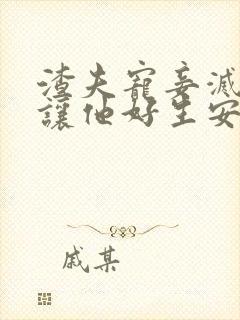 渣夫寵妾滅
讓他好生安
戚某